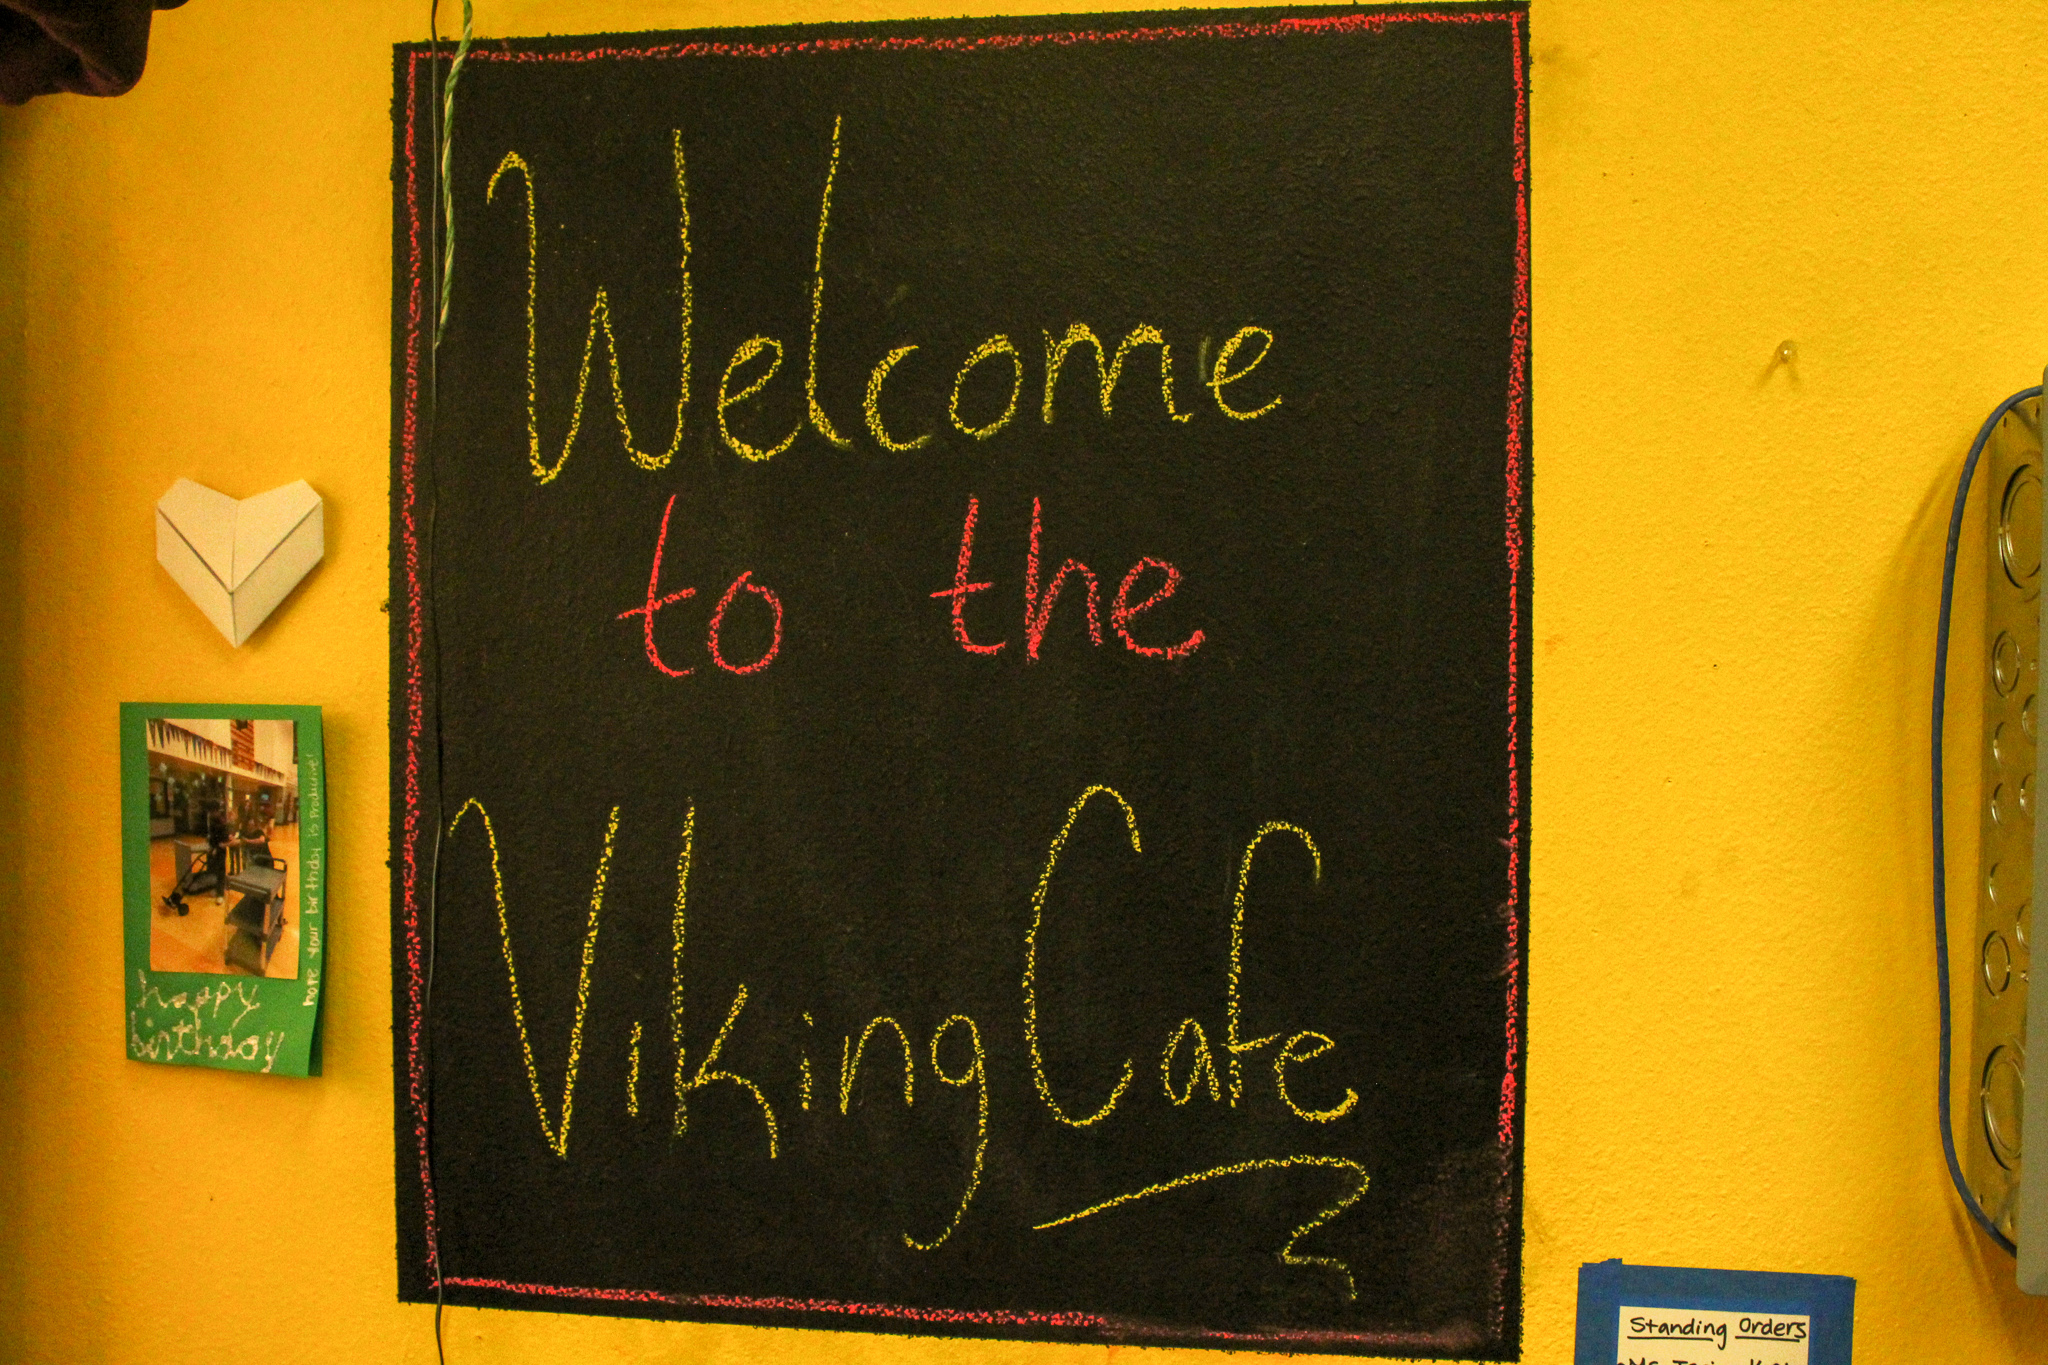 Welcome
to the
Viking Cafe
happy
birthday
hope your birthday is productive!
Standing Orders